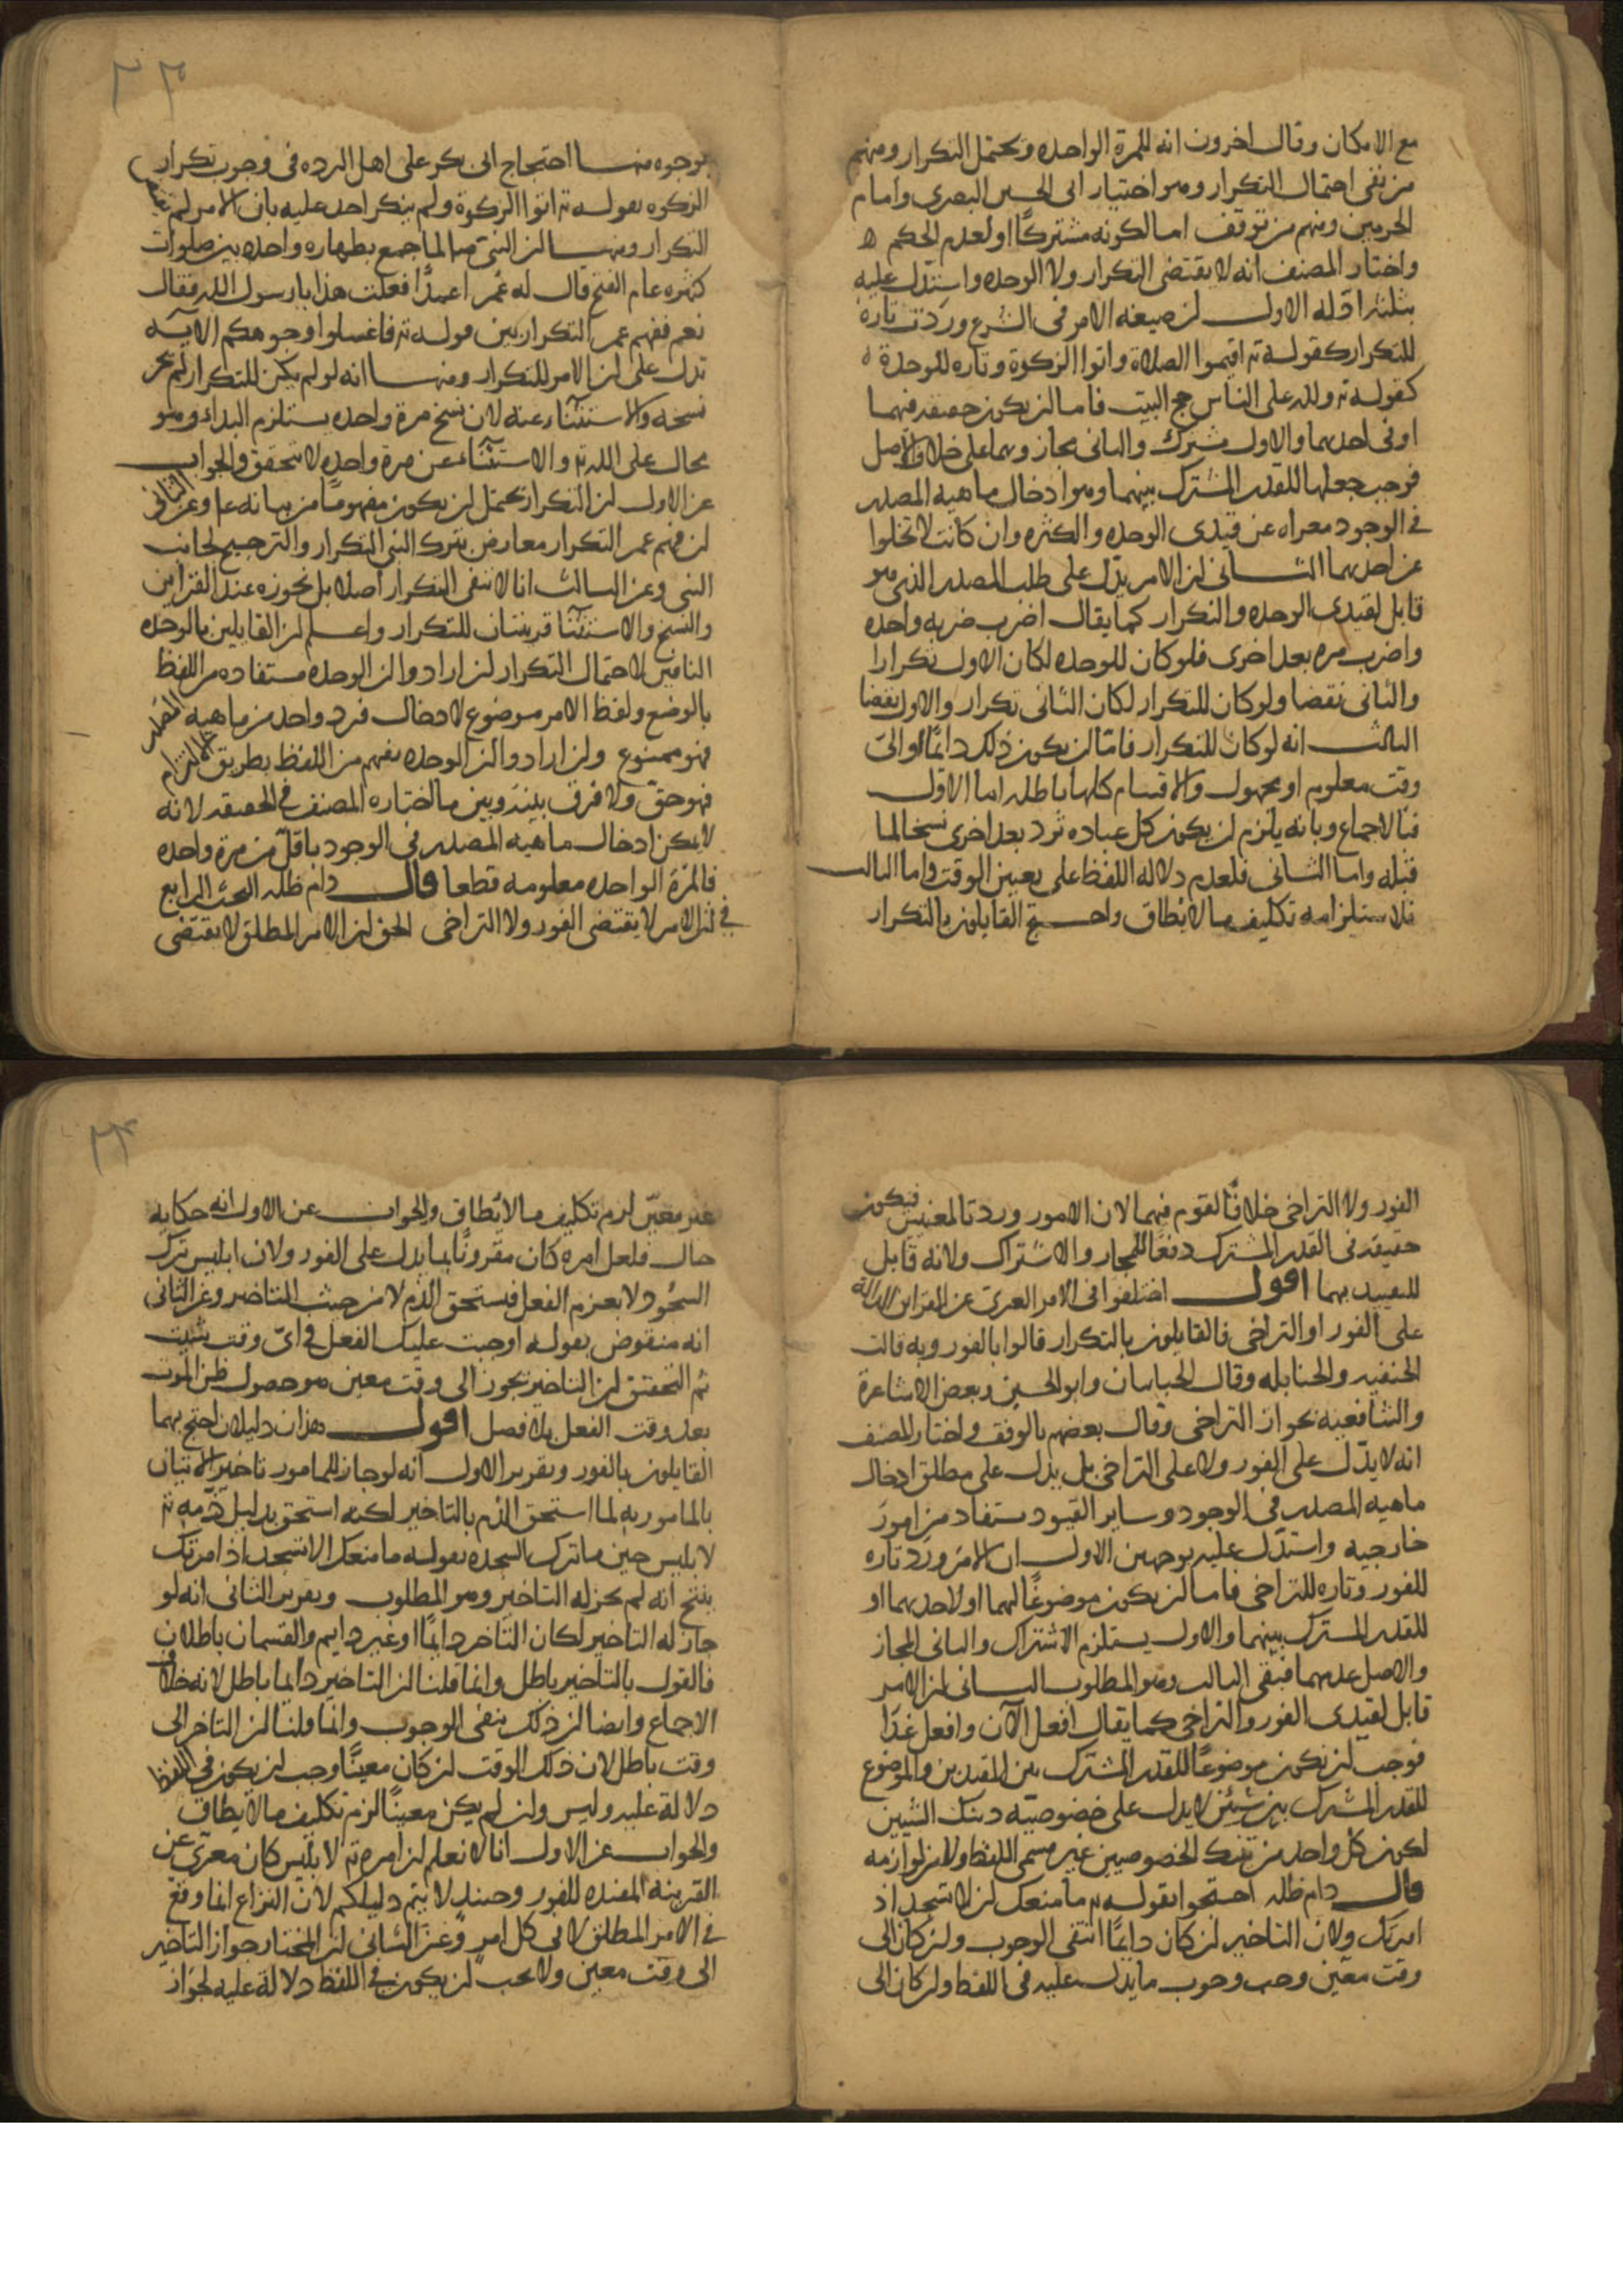 مع الامكان وقال اخرون انه للمرة الواحده ويحتمل التكرار ومنهم
من نفى احتمال التكرار وهو اختيار ابى الحسين البصرى وامام
الحرمين ومنهم من توقف اما لكونه مشتركًا او لعدم الحكم ه
واختار المصنف انه لا يقتضى التكرار ولا الوحده واستدل عليه
بثلثه ادله الاول ان صيغه الامر فى الشرع وردت تارة
للتكرار كقوله تع اقيموا الصلاة واتوا الزكوة وتاره للوحدة
كقوله تع ولله على الناس حج البيت فاما ان يكون حقيقه فيهما
او فى احدهما والاول مشترك والثانى مجاز وهما على خلاف الاصل
فوجب جعلها للقدر المشترك بينهما وهو ادخال ماهيه المصدر
فى الوجود معراه عن قيدى الوحده والكثره وان كانت لا تخلوا
عن احدهما الثانى ان الامر يدل على طلب المصدر الذى هو
قابل لقيدى الوحده والتكرار كما يقال اضرب ضربه واحده
واضرب مره بعد اخرى فلو كان للوحده لكان الاول تكرارا
والثانى نقضا ولو كان للتكرار لكان الثانى تكرار والاول نقضا
الثالث انه لو كان للتكرار فامّا ان يكون ذلك دايمًا او الى
وقت معلوم او مجهول والاقسام كلها باطله اما الاول
فبالاجماع وبانه يلزم ان يكون كل عباده ترد بعد اخرى نسخا لما
قبله واما الثانى فلعدم دلاله اللفظ على تعيين الوقت واما الثالث
فلاستلزامه تكليف ما لا يطاق واحتج القايلون بالتكرار
٢٣
بوجوه منها احتجاج ابى بكر على اهل الرده فى وجوب تكرار
الزكوه بقوله تع اتوا الزكوة ولم ينكر احد عليه بان الامر لم
التكرار ومنها ان النبى ص لما جمع بطهاره واحده بين صلوات
كثيره عام الفتح قال له عمر اعمدًا فعلت هذا يا رسول الله فقال
نعم ففهم عمر التكرار من قوله تع فاغسلوا وجوهكم الايه
تدل على ان الامر للتكرار ومنها انه لو لم يكن للتكرار لم يجز
نسخه والاستثناء عنه لان نسخ مرة واحده يستلزم البداء وهو
محال على الله تع والاستثناء عن مرة واحده لا يتحقق والجواب
عن الاول ان التكرار يحتمل ان يكون مفهومًا من بيانه ع وعن الثانى
ان فهم عمر التكرار معارض بترك النبى التكرار والترجيح لجانب
النبى وعن الثالث انا لا ننفى التكرار اصلا بل نجوزه عند القراين
والنسخ والاستثنآ قرينتان للتكرار واعلم ان القايلين بالوحده
النافين لاحتمال التكرار ان ارادوا ان الوحده مستفاده من اللفظ
بالوضع ولفظ الامر موضوع لادخال فرد واحد من ماهيه المصدر
فهو ممنوع وان ارادوا ان الوحده تفهم من اللفظ بطريق الالتزام
فهو حق ولا فرق بينه وبين ما اختاره المصنف فى الحقيقه لانه
لا يمكن ادخال ماهيه المصدر فى الوجود باقل من مرة واحده
فالمرة الواحده معلومه قطعا قال دام ظله البحث الرابع
فى ان الامر لا يقتضى الفور ولا التراخى الحق ان الامر المطلق لا يقتضى
الفور ولا التراخى خلافًا لقوم فيهما لان الامور وردتا لمعنيين فيكون
حقيقه فى القدر المشترك دفعًا للمجاز والاشتراك ولانه قابل
للتقييد بهما اقول اختلفوا فى الامر العرى عن القراين الدالة
على الفور او التراخى فالقايلون بالتكرار قالوا بالفور وبه قالت
الحنفيه والحنابله وقال الجبائيان وابو الحسين وبعض الاشاعرة
والشافعيه بجواز التراخى وقال بعضهم بالوقف واختار المصنف
انه لا يدل على الفور ولا على التراخى بل يدل على مطلق ادخال
ماهيه المصدر فى الوجود وساير القيود مستفاد من امور
خارجيه واستدل عليه بوجهين الاول ان الامر ورد تاره
للفور وتاره للتراخى فاما ان يكون موضوعًا لهما او لاحدهما او
للقدر المشترك بينهما والاول يستلزم الاشتراك والثانى المجاز
والاصل عدمهما فبقى الثالث وهو المطلوب الثانى ان الامر
قابل لقيدى الفور والتراخى كما يقال افعل الآن وافعل غدًا
فوجب ان يكون موضوعًا للقدر المشترك بين القيدين والموضوع
للقدر المشترك بين شيئين لا يدل على خصوصيّه ذينك الشيين
لكون كل واحد من تينك الخصوصيين غير مسمى اللفظ ولا من لوازمه
قال دام ظله احتجوا بقوله تع ما منعك ان لا تسجد اذ
امرتك ولان التاخير ان كان دايمًا انتفى الوجوب وان كان الى
وقت معيّن وجب وجوب ما يدل عليه فى اللفظ وان كان الى
٢٤
غير معيّن لزم تكليف ما لا يطاق والجواب عن الاول انه حكايه
حال فلعل امره كان مقرونًا بما يدل على الفور ولان ابليس ترك
السجود لا بعزم الفعل فيستحق الذم لا من حيث التاخير وعن الثانى
انه منقوض بقوله اوجبت عليك الفعل فى اى وقت شيت
ثم التحقيق ان التاخير يجوز الى وقت معين هو حصول ظن الموت
بعد وقت الفعل بلا فصل اقول هذان دليلان احتج بهما
القايلون بالفور وتقرير الاول انه لو جاز للمامور تاخير الاتيان
بالمامور به لما استحق الذم بالتاخير لكنه استحق بدليل ذمه تع
لابليس حين ما ترك السجده بقوله ما منعك الا تسجد اذ امرتك
ينتج انه لم يجز له التاخير وهو المطلوب وتقرير الثانى انه لو
جاز له التاخير لكان التاخر دايمًا او غير دايم والقسمان باطلان
فالقول بالتاخير باطل وانما قلنا ان التاخير دايما باطل لانه خلاف
الاجماع وايضا ان ذلك ينفى الوجوب وانما قلنا ان التاخر الى
وقت باطل لان ذلك الوقت ان كان معينًا وجب ان يكون فى اللفظ
دلالة عليه وليس وان لم يكن معينًا لزم تكليف ما لا يطاق
والجواب عن الاول انا لا نعلم ان امره تع لابليس كان معرّى عن
القرينة المفيده للفور وحينئذ لا يتم دليلكم لان النزاع انما وقع
فى الامر المطلق لا فى كل امر وعن الثانى ان المختار جواز التاخير
الى وقت معين ولا يجب ان يكون فى اللفظ دلالة عليه لجواز